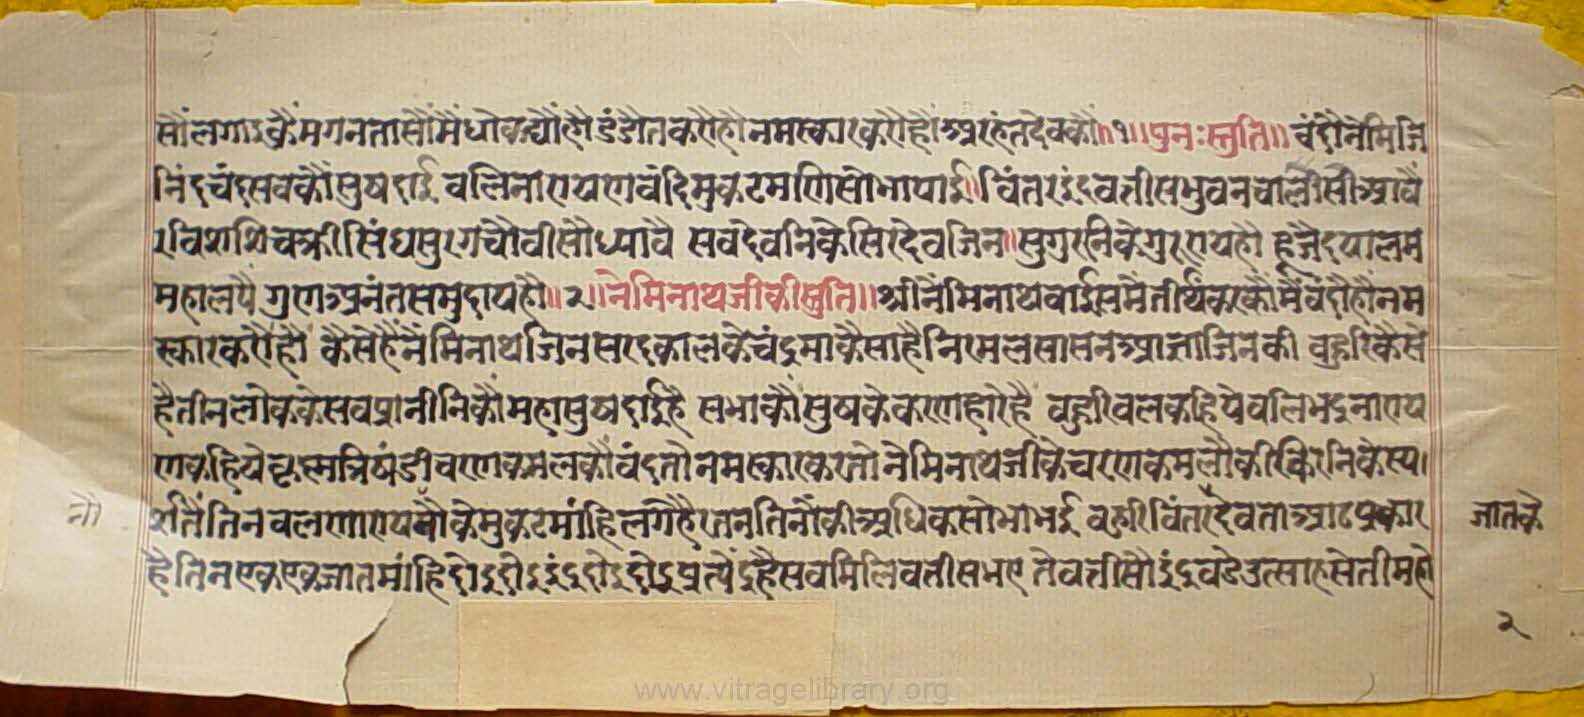 सौं लगाइकैं मगनतासौं मैं धोक द्यौं हौं डंडौत करौ हौ नमस्कार करौ हौं अरहंतदेवकौं॥१॥पुनःस्तुति॥ चंदौ नेमिजि
निंदचंद सवकौं सुषदाई वलि नारायण वंदि मुकटमणि सोभा पाई॥ विंतर इंद्र वतीस भुवनचालीसौ आवैं
रवि शशि चक्री सिंघ सुरग चौवीसौं ध्यावै सव देवनि के सिरदेव जिन॥सुगुरनि के गुरु राय हौ हूजै दयाल मम
महालपै गुण अनंत समुदाय हौ॥२॥नेमिनाथजीकी स्तुति॥ श्री नेमिनाथ वाईसमै तीर्थंकरकौं मैं वंदौ हौं नम
स्कार करौ हौं कैसे है नेमिनाथ जिन सरदकालके चंद्रमा कैसा है निरमल सासन आज्ञा जिनकी वहुरि कैसे
है तीन लोकके सव प्रानीनिकौं महासुषदाई है सभाकौं सुषके करणहारे है वहुरि वल कहिये वलिभद्र नाराय
ण कहिये कृस्न त्रिषंडी चरणकमलकौं वंदतां नमस्कार करतां नेमिनाथजीके चरणकमलौंकी किरनिके स्प
र्शतैं तिन वल णारायणौंके मुकटमांहि लगे है रतन तिनौंकी अधिक सोभा भई वहुरि विंतर देवता आठ प्रकार
है तिन एक एक जातमांहि दोइ दोइ इंद्र दोइ दोइ प्रत्येंद्र है सव मिलि वतीस भए ते वतीसौ इंद्र वडे उत्साहसेती महो
नौ
जातके
२
www.vitragelibrary.org